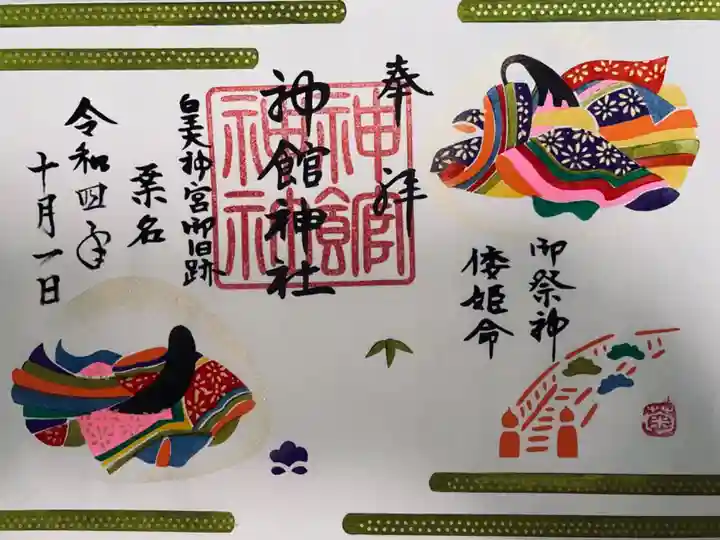 奉拝
御祭神
倭姫命
神館神社
神館神社
皇大神宮御旧跡
桑名
令和四年
十月一日